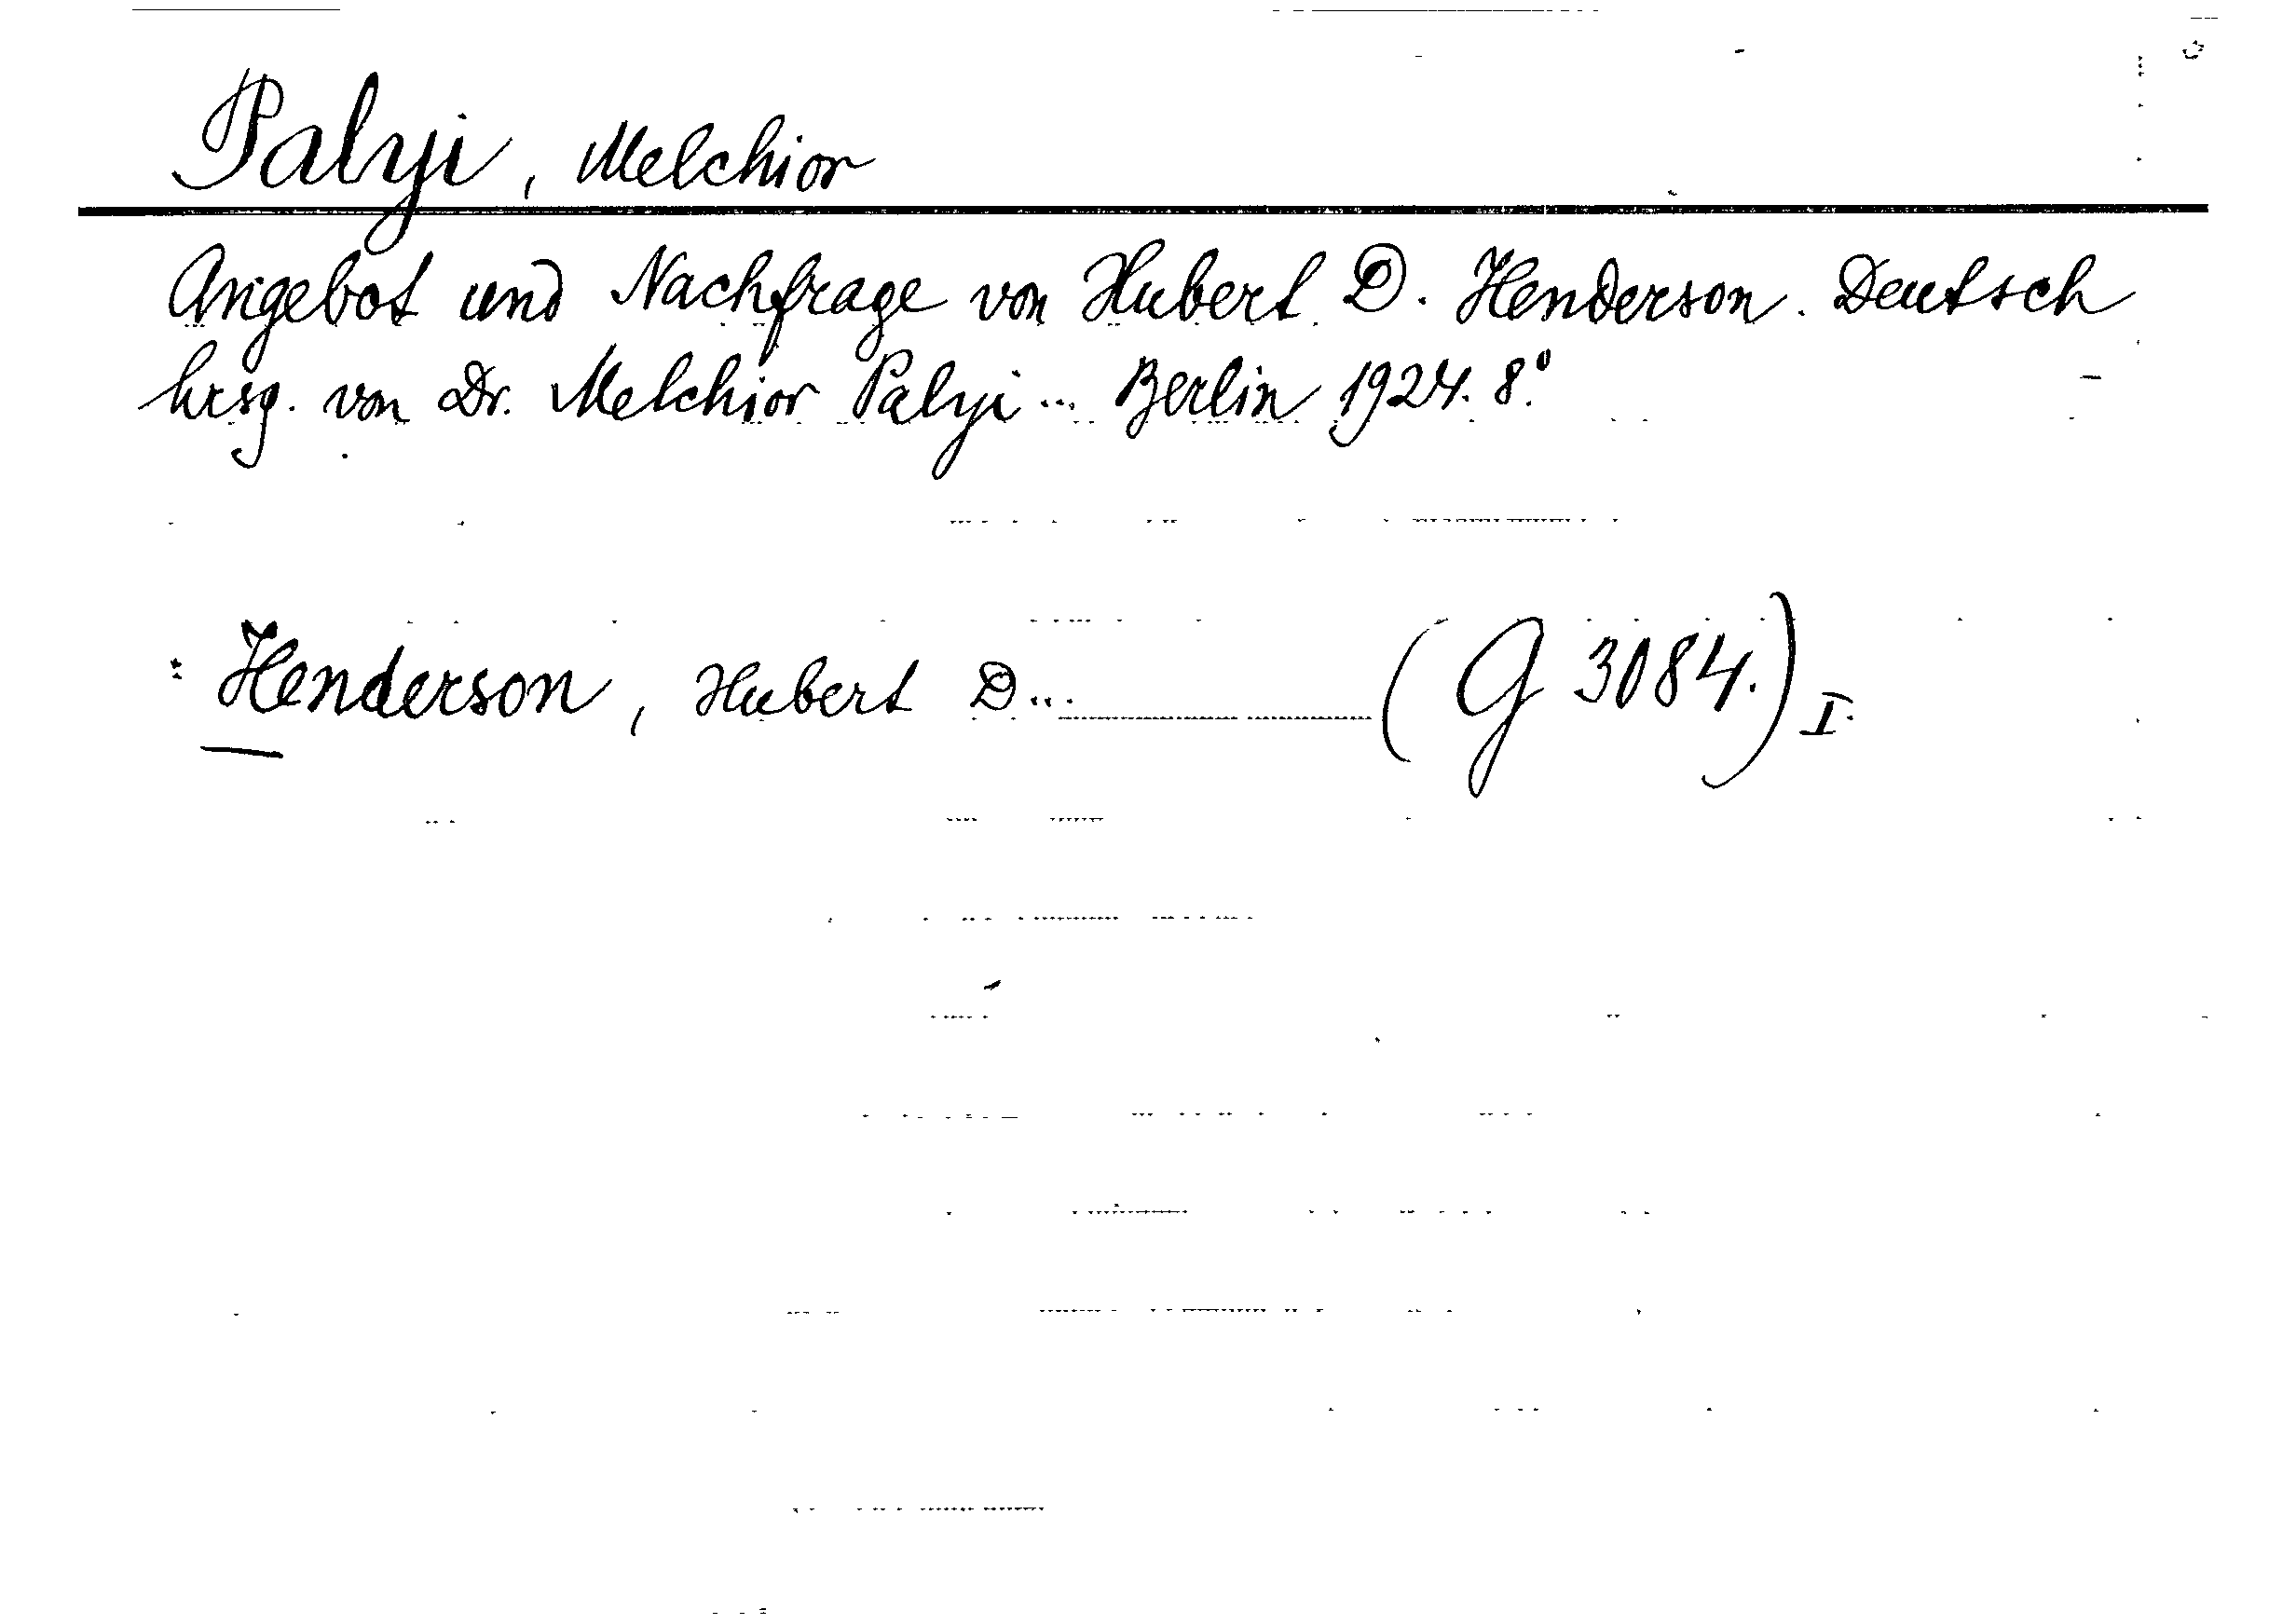 Palyi, Melchior
Angebot und Nachfrage von Hubert D. Henderson. Deutsch
hrsg. von Dr. Melchior Palyi ... Berlin 1924. 8.°
: Henderson, Hubert D... (G 3084.) I.